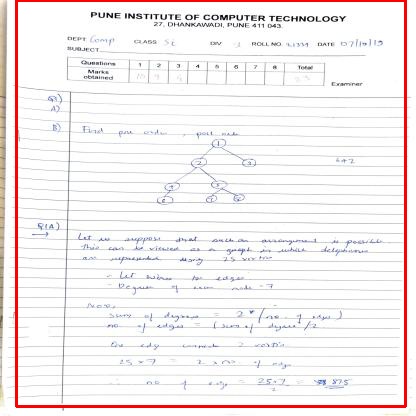 PUNE INSTITUTE OF COMPUTER TECHNOLOGY
27, DHANKAWADI, PUNE 411 043.
DEPT. Comp CLASS. DIV ROLL NO. DATE
SUBJECT
Questions 1 2 3 4 5 6 7 8 Total
Marks obtained
Examiner
Q1)
A)
B) Find pre order , post order
1
2 3
4 5
Q1A)
Let us suppose that such an arrangement is possible
This can be viewed as a graph in which telephones
are represented using 25 vertices
- Let wires be edges
- Degree of each node - 7
Now,
sum of degrees = 2 * (no. of edges)
no. of edges = (sum of degree)/2
One edge connects 2 vertices
25 x 7 = 2 x no. of edges
∴ no of edges = 25x7/2 = 87.5